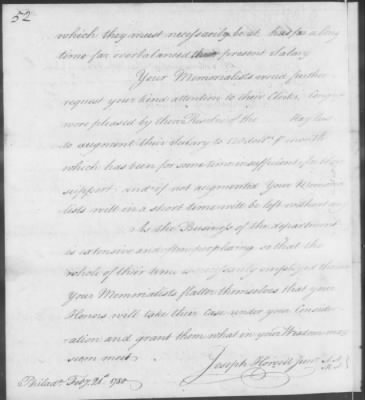 52
which they must necessarily be at has for a long
time far overbalanced their present Salary
Your Memorialists would further
request your kind attention to their Clerks,
were pleased by their Resolve of the May last
to augment their Salary to dolls. P month
which has been for some time insufficient for their
support; and if not augmented Your Memoria-
lists will in a short time will be left without any
As the Business of the department
is extensive and often perplexing so that the
whole of their time is necessarily employed therein
Your Memorialists flatter themselves that your
Honors will take their case under your Conside-
ration and grant them what in your Wisdom may
seem meet
Joseph Howell Junr.
Philada. Feby. 21st. 1780